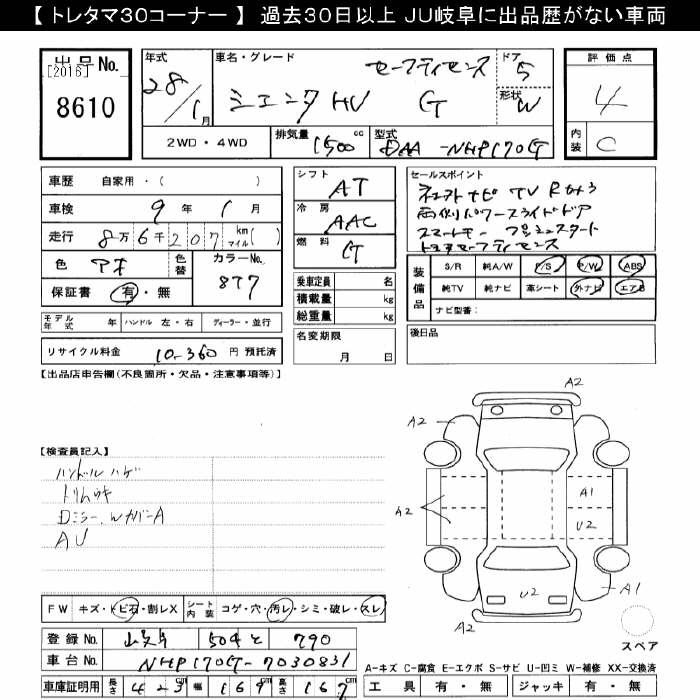 【トレタマ30コーナー】 過去30日以上 JU岐阜に出品歴がない車両
出品No.
[2016]
8610
年式
28/1月
車名・グレード
セーフティセンス
シエンタ HV G
ドア
5
形状
W
2WD・4WD
排気量
1500cc
型式
DAA-NHP170G
評価点
4
内装
C
車歴 自家用・( )
車検 9年 1月
走行 8万6千207 km マイル( )
色 アオ
色替
カラーNo.
877
保証書 有・無
モデル年式 年 ハンドル 左・右 ディーラー・並行
リサイクル料金 10360円 預託済
シフト AT
冷房 AAC
燃料 G
乗車定員 名
積載量 kg
総重量 kg
名変期限
月 日
セールスポイント
TV Rカメラ
両側パワースライドドア
スマートキー プッシュスタート
トヨタセーフティセンス
装備品
S/R 純A/W P/S P/W ABS
純TV 純ナビ 革シート 外ナビ エアB
ナビ型番:
後日品
【出品店申告欄(不良箇所・欠品・注意事項等)】
【検査員記入】
ハンドルハゲ
トリムキ
Dミラー、WカバーA
AU
A2
A2
A2
A1
U2
U2
A1
A2
スペア
FW キズ・トビ石・割レX
シート内装 コゲ・穴・汚レ・シミ・破レ・スレ
登録No. 岐阜 504 と 790
車台No. NHP170G-7030831
車庫証明用 長さ 423cm 幅 169cm 高さ 167cm
A-キズ C-腐食 E-エクボ S-サビ U-凹ミ W-補修 XX-交換済
工具 有・無 ジャッキ 有・無